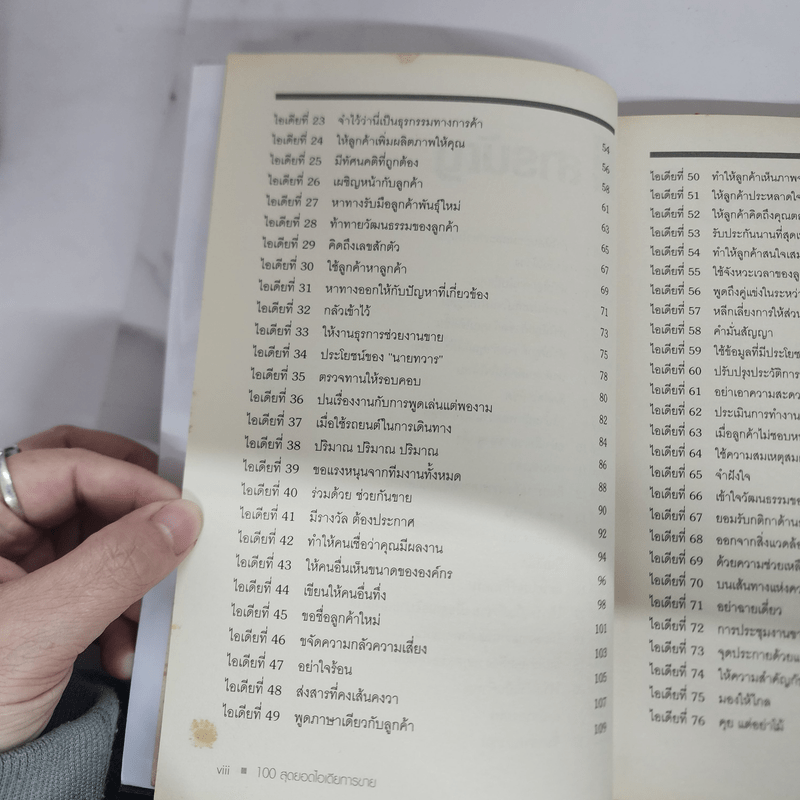 ไอเดียที่ 23 จำไว้ว่านี่เป็นธุรกรรมทางการค้า 54
ไอเดียที่ 24 ให้ลูกค้าเพิ่มผลิตภาพให้คุณ 56
ไอเดียที่ 25 มีทัศนคติที่ถูกต้อง 58
ไอเดียที่ 26 เผชิญหน้ากับลูกค้า 61
ไอเดียที่ 27 หาทางรับมือลูกค้าพันธุ์ใหม่ 63
ไอเดียที่ 28 ท้าทายวัฒนธรรมของลูกค้า 65
ไอเดียที่ 29 คิดถึงเลขสักตัว 67
ไอเดียที่ 30 ใช้ลูกค้าหาลูกค้า 69
ไอเดียที่ 31 หาทางออกให้กับปัญหาที่เกี่ยวข้อง 71
ไอเดียที่ 32 กลัวเข้าไว้ 73
ไอเดียที่ 33 ให้งานธุรการช่วยงานขาย 75
ไอเดียที่ 34 ประโยชน์ของ "นายทวาร" 78
ไอเดียที่ 35 ตรวจทานให้รอบคอบ 80
ไอเดียที่ 36 ปนเรื่องงานกับการพูดเล่นแต่พองาม 82
ไอเดียที่ 37 เมื่อใช้รถยนต์ในการเดินทาง 84
ไอเดียที่ 38 ปริมาณ ปริมาณ ปริมาณ 86
ไอเดียที่ 39 ขอแรงหนุนจากทีมงานทั้งหมด 88
ไอเดียที่ 40 ร่วมด้วย ช่วยกันขาย 90
ไอเดียที่ 41 มีรางวัล ต้องประกาศ 92
ไอเดียที่ 42 ทำให้คนเชื่อว่าคุณมีผลงาน 94
ไอเดียที่ 43 ให้คนอื่นเห็นขนาดขององค์กร 96
ไอเดียที่ 44 เขียนให้คนอื่นทึ่ง 98
ไอเดียที่ 45 ขอชื่อลูกค้าใหม่ 101
ไอเดียที่ 46 ขจัดความกลัวความเสี่ยง 103
ไอเดียที่ 47 อย่าใจร้อน 105
ไอเดียที่ 48 ส่งสารที่คงเส้นคงวา 107
ไอเดียที่ 49 พูดภาษาเดียวกับลูกค้า 109
viii ■ 100 สุดยอดไอเดียการขาย
ไอเดียที่ 50 ทำให้ลูกค้าเห็นภาพ
ไอเดียที่ 51 ให้ลูกค้าประหลาดใจ
ไอเดียที่ 52 ให้ลูกค้าคิดถึงคุณ
ไอเดียที่ 53 รับประกันนานที่สุด
ไอเดียที่ 54 ทำให้ลูกค้าสนใจ
ไอเดียที่ 55 ใช้จังหวะเวลาของ
ไอเดียที่ 56 พูดถึงคู่แข่งใน
ไอเดียที่ 57 หลีกเลี่ยงการให้ส่วน
ไอเดียที่ 58 คำมั่นสัญญา
ไอเดียที่ 59 ใช้ข้อมูลที่มีประโยช
ไอเดียที่ 60 ปรับปรุงประวัติการ
ไอเดียที่ 61 อย่าเอาความสะดว
ไอเดียที่ 62 ประเมินการทำงาน
ไอเดียที่ 63 เมื่อลูกค้าไม่ชอบ
ไอเดียที่ 64 ใช้ความสมเหตุสม
ไอเดียที่ 65 จำฝังใจ
ไอเดียที่ 66 เข้าใจวัฒนธรรมขอ
ไอเดียที่ 67 ยอมรับกติกาด้าน
ไอเดียที่ 68 ออกจากสิ่งแวดล้อ
ไอเดียที่ 69 ด้วยความช่วยเหลือ
ไอเดียที่ 70 บนเส้นทางแห่ง
ไอเดียที่ 71 อย่าฉายเดี่ยว
ไอเดียที่ 72 การประชุมงาน
ไอเดียที่ 73 จุดประกายด้วย
ไอเดียที่ 74 ให้ความสำคัญกับ
ไอเดียที่ 75 มองให้ไกล
ไอเดียที่ 76 คุย แต่อย่าโม้